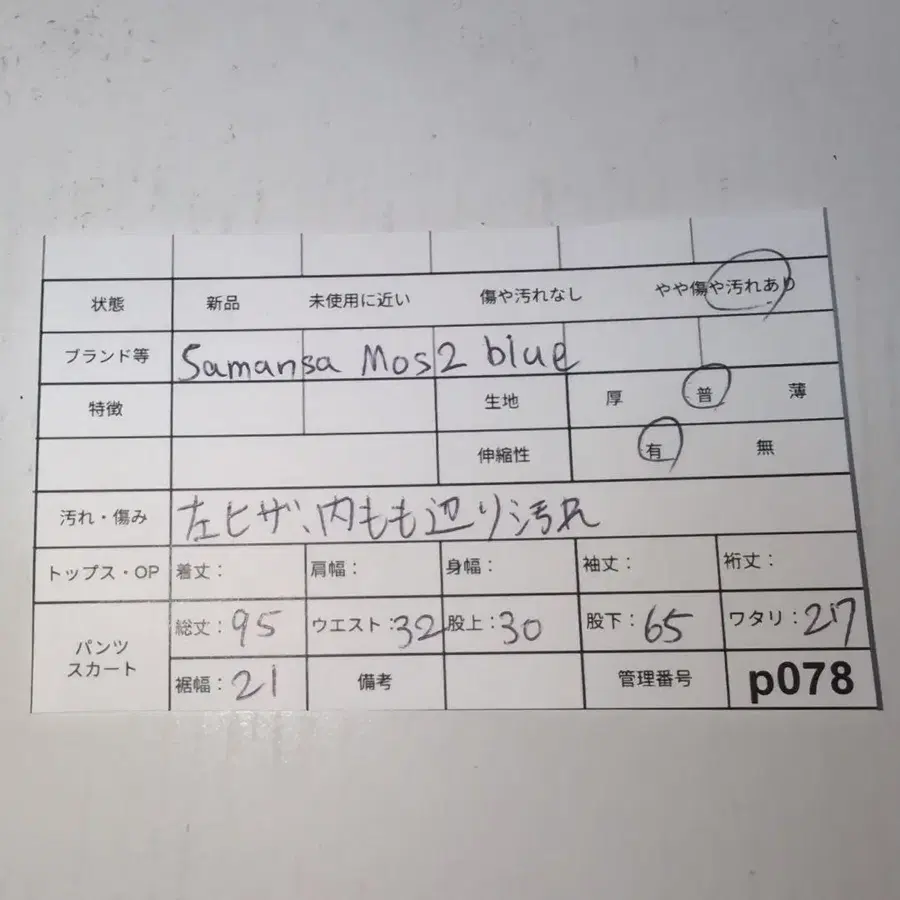 状態 新品 未使用に近い 傷や汚れなし やや傷や汚れあり
ブランド等 Samansa Mos2 blue
特徴 生地 厚 普 薄
伸縮性 有 無
汚れ・傷み 左ヒザ、内もも辺り汚れ
トップス・OP 着丈: 肩幅: 身幅: 袖丈: 裄丈:
パンツ スカート 総丈:95 ウエスト:32 股上:30 股下:65 ワタリ:27
裾幅:21 備考 管理番号 p078